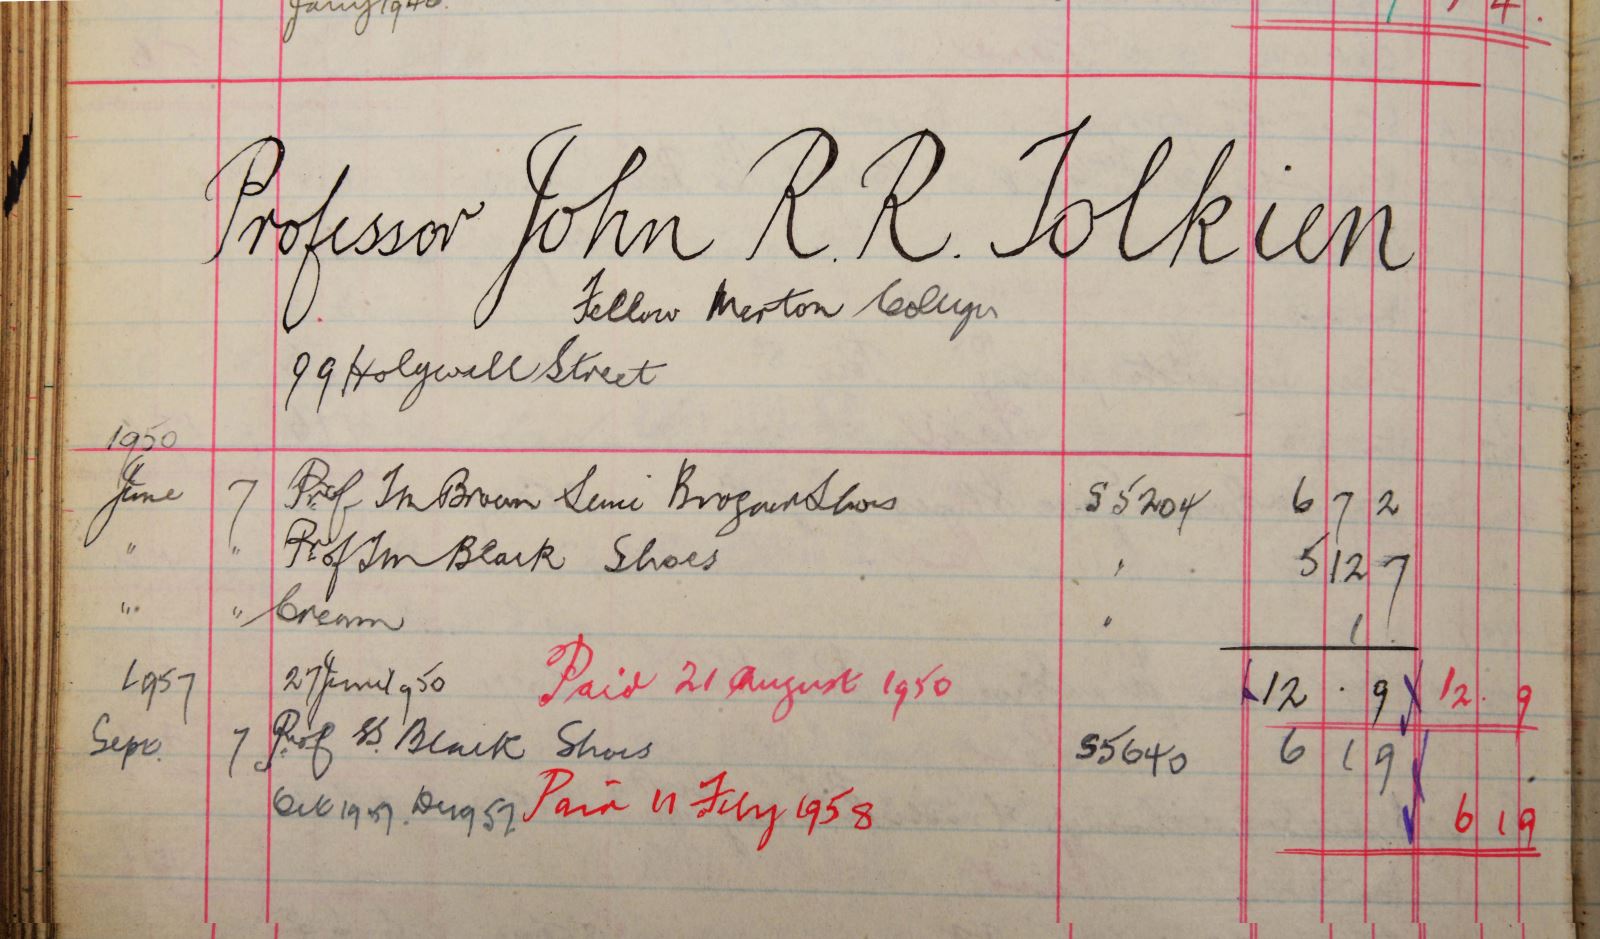 Jany 1940.
7 4.
Professor John R. R. Tolkien
Fellow Merton College
99 Holywell Street
1950
June 7 Prof Tm Brown Semi Brogue Shoes S5204 6 7 2
" " Prof Tm Black Shoes " 5 12 7
" " Cream " 1 .
27 June 1950 Paid 21 August 1950 12 . 9 12 . 9
1957
Sept. 7 Prof Black Shoes S5640 6 1 9
Oct 1957. Dec 1957. Paid 11 Feby 1958 6 1 9